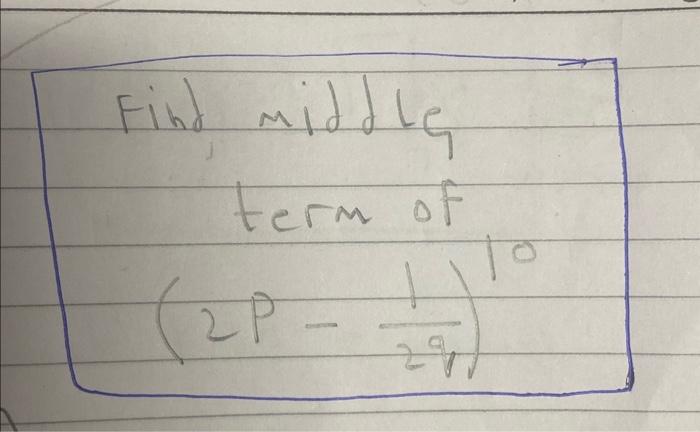 Find middle
term of
(2P - 1/2q)^10